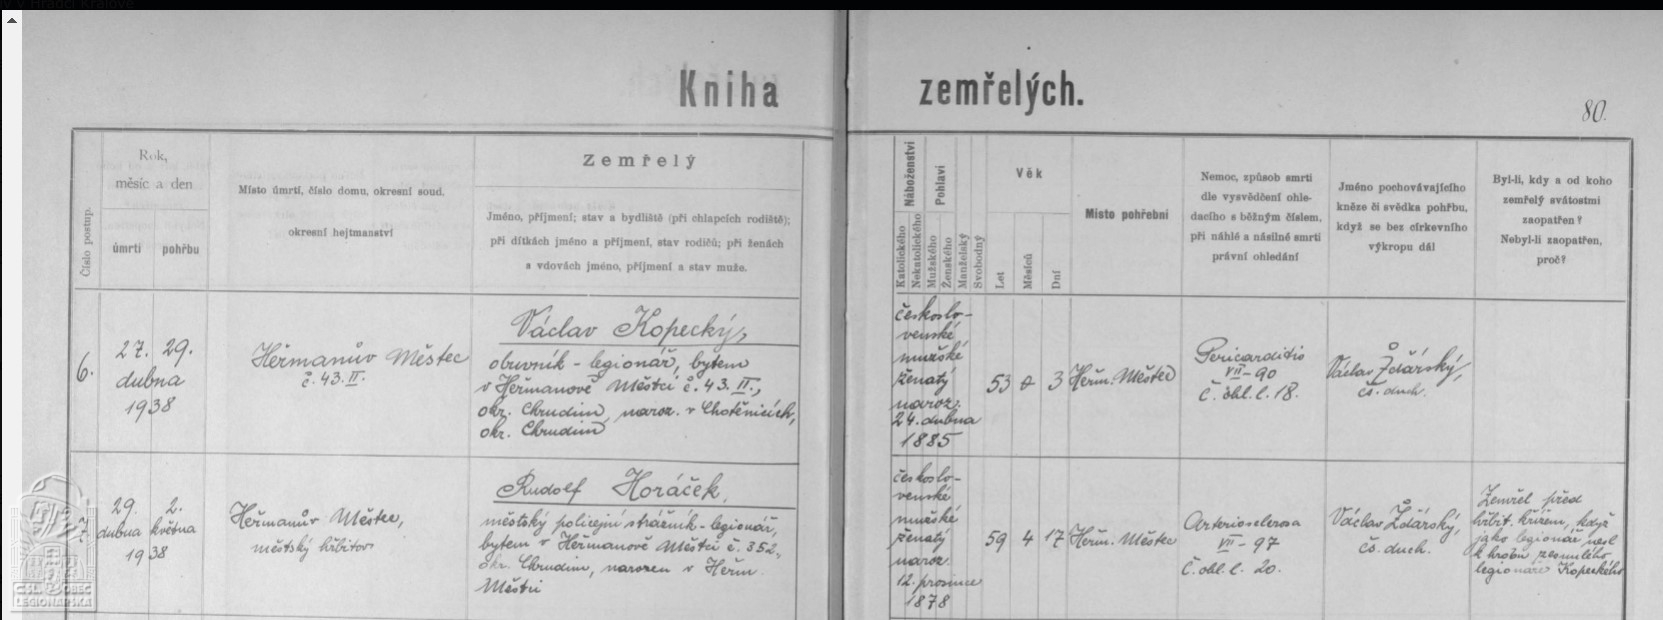 Kniha zemřelých.
80.
Číslo postup.
Rok,
měsíc a den
úmrtí
pohřbu
Místo úmrtí, číslo domu, okresní soud,
okresní hejtmanství
Zemřelý
Jméno, příjmení; stav a bydliště (při chlapcích rodiště);
při dítkách jméno a příjmení, stav rodičů; při ženách
a vdovách jméno, příjmení a stav muže.
Náboženství
Katolického
Nekatolického
Pohlaví
Mužského
Ženského
Manželský
Svobodný
Věk
Let
Měsíců
Dní
Místo pohřební
Nemoc, způsob smrti
dle vysvědčení ohle-
dacího s běžným číslem,
při náhlé a násilné smrti
právní ohledání
Jméno pochovávajícího
kněze či svědka pohřbu,
když se bez církevního
výkropu dál
Byl-li, kdy a od koho
zemřelý svátostmi
zaopatřen?
Nebyl-li zaopatřen,
proč?
6.
27. 29.
dubna
1938
Heřmanův Městec
č. 43. II.
Václav Kopecký,
obuvník - legionář, bytem
v Heřmanově Městci č. 43. II.,
okr. Chrudim, naroz. v Chotěnicích,
okr. Chrudim
českoslo-
venské
mužské
ženatý
naroz.
24. dubna
1885
53 0 3
Heřm. Městec
Pericarditis
VII - 90
č. ohl. l. 18.
Václav Žďárský,
čs. duch.
7.
29. 2.
dubna května
1938
Heřmanův Městec,
městský hřbitov
Rudolf Horáček,
městský policejní strážník - legionář,
bytem v Heřmanově Městci č. 352,
okr. Chrudim, narozen v Heřm.
Městci
českoslo-
venské
mužské
ženatý
naroz.
12. prosince
1878
59 4 17
Heřm. Městec
Arteriosclerosa
VII - 97
č. ohl. l. 20.
Václav Žďárský,
čs. duch.
Zemřel před
hřbit. křížem, když
jako legionář nesl
k hrobu zesnulého
legionáře Kopeckého
ČSL. OBEC
LEGIONÁŘSKÁ